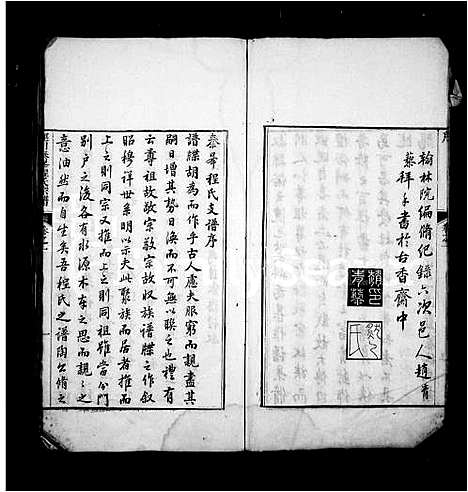 翰林院編脩紀錄六次邑人趙青
藜拜手書於古香齋中
趙印青藜
泰華程氏支譜序
譜牒胡為而作乎古人慮夫服窮而親盡其
嗣日增其勢日渙而不可無以聯之也禮有
云尊祖故敬宗敬宗故收族譜牒之作叙
昭穆詳世系明以示夫此聚族而居者推而
上之則同宗又推而上之則同祖雖當分門
別戶之後各有水源木本之思而親親之
意油然而自生矣吾程氏之譜陶公脩之